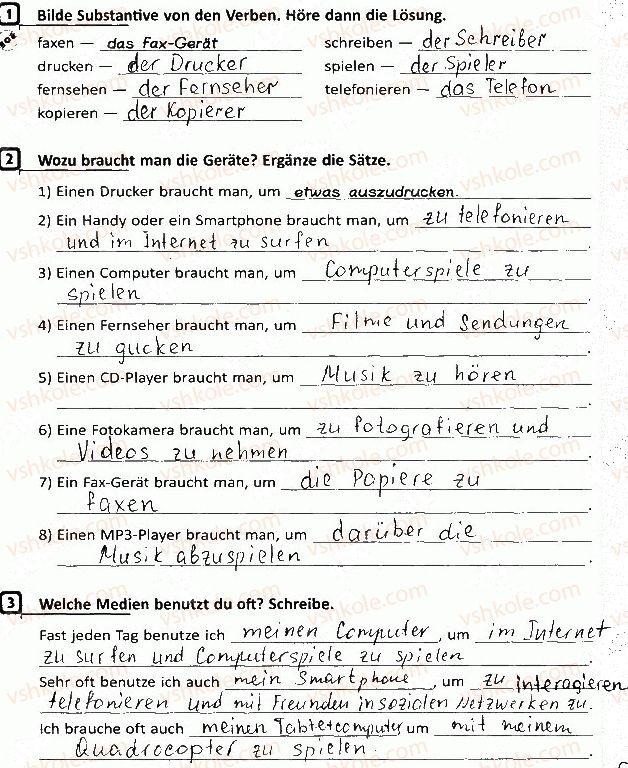 1 Bilde Substantive von den Verben. Höre dann die Lösung.
faxen — das Fax-Gerät schreiben — der Schreiber
drucken — der Drucker spielen — der Spieler
fernsehen — der Fernseher telefonieren — das Telefon
kopieren — der Kopierer
2 Wozu braucht man die Geräte? Ergänze die Sätze.
1) Einen Drucker braucht man, um etwas auszudrucken.
2) Ein Handy oder ein Smartphone braucht man, um zu telefonieren
und im Internet zu surfen.
3) Einen Computer braucht man, um Computerspiele zu
spielen.
4) Einen Fernseher braucht man, um Filme und Sendungen
zu gucken.
5) Einen CD-Player braucht man, um Musik zu hören
.
6) Eine Fotokamera braucht man, um zu fotografieren und
Videos zu nehmen.
7) Ein Fax-Gerät braucht man, um die Papiere zu
faxen.
8) Einen MP3-Player braucht man, um darüber die
Musik abzuspielen.
3 Welche Medien benutzt du oft? Schreibe.
Fast jeden Tag benutze ich meinen Computer, um im Internet
zu surfen und Computerspiele zu spielen.
Sehr oft benutze ich auch mein Smartphone, um zu interagieren
telefonieren und mit Freunden in sozialen Netzwerken zu.
Ich brauche oft auch meinen Tabletcomputer um mit meinem
Quadrocopter zu spielen.